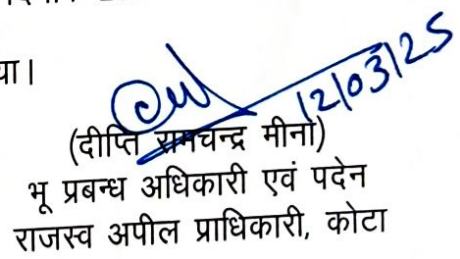 या।
12/03/25
(दीप्ति रामचन्द्र मीना)
भू प्रबन्ध अधिकारी एवं पदेन
राजस्व अपील प्राधिकारी, कोटा